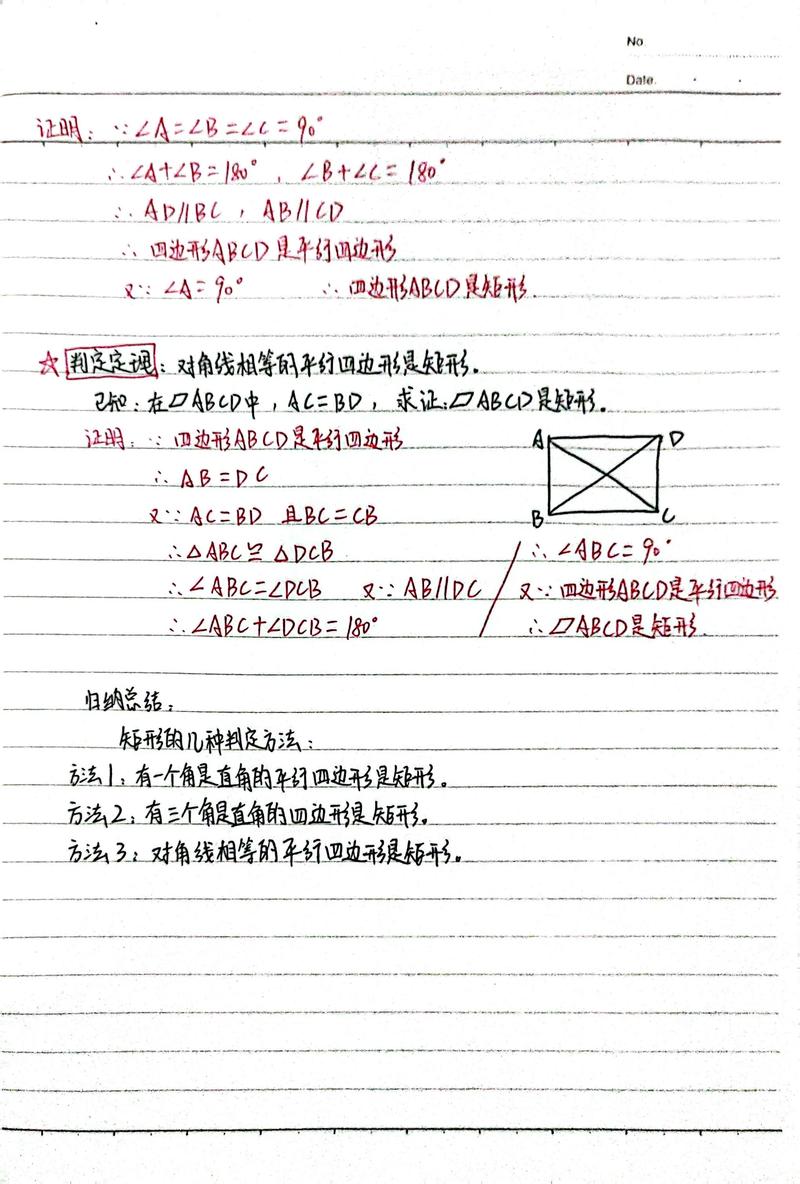 No
Date. . .
证明：∵∠A=∠B=∠C=90°
∴∠A+∠B=180°，∠B+∠C=180°
∴AD//BC，AB//CD
∴四边形ABCD是平行四边形
又∵∠A=90° ∴四边形ABCD是矩形.
☆判定定理：对角线相等的平行四边形是矩形。
已知：在▱ABCD中，AC=BD，求证：▱ABCD是矩形。
证明：∵四边形ABCD是平行四边形
∴AB=DC
又∵AC=BD 且BC=CB
∴△ABC≌△DCB
∴∠ABC=∠DCB 又∵AB//DC
∴∠ABC+∠DCB=180°
A D
B C
∴∠ABC=90°
又∵四边形ABCD是平行四边形
∴▱ABCD是矩形.
归纳总结：
矩形的几种判定方法：
方法1：有一个角是直角的平行四边形是矩形。
方法2：有三个角是直角的四边形是矩形。
方法3：对角线相等的平行四边形是矩形。